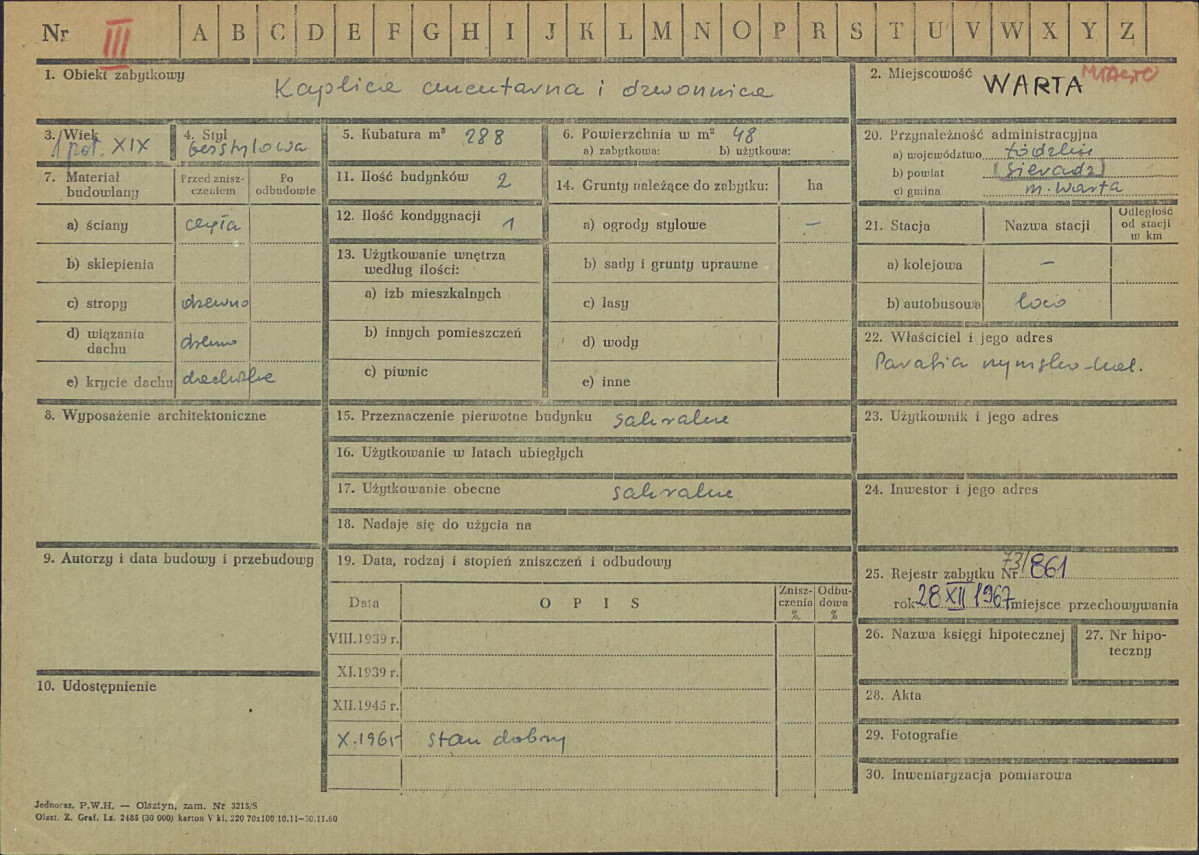 Nr III A B C D E F G H I J K L M N O P R S T U V W X Y Z
1. Obiekt zabytkowy Kaplica cmentarna i dzwonnica
2. Miejscowość WARTA MIASTO
3. Wiek 1 poł. XIX
4. Styl bezstylowa
5. Kubatura m³ 288
6. Powierzchnia w m² 48
a) zabytkowa: b) użytkowa:
20. Przynależność administracyjna
a) województwo Łódzkie
b) powiat [Sieradz]
c) gmina m. Warta
7. Materiał budowlany
Przed zniszczeniem
Po odbudowie
a) ściany cegła
b) sklepienia
c) stropy drewno
d) wiązania dachu drewno
e) krycie dachu dachówka
11. Ilość budynków 2
12. Ilość kondygnacji 1
13. Użytkowanie wnętrza
według ilości:
a) izb mieszkalnych
b) innych pomieszczeń
c) piwnic
14. Grunty należące do zabytku: ha
a) ogrody stylowe –
b) sady i grunty uprawne
c) lasy
d) wody
e) inne
21. Stacja Nazwa stacji Odległość od stacji w km
a) kolejowa –
b) autobusowa loco
22. Właściciel i jego adres
Parafia rzymsko-kat.
8. Wyposażenie architektoniczne
15. Przeznaczenie pierwotne budynku sakralne
16. Użytkowanie w latach ubiegłych
17. Użytkowanie obecne sakralne
18. Nadaje się do użycia na
23. Użytkownik i jego adres
24. Inwestor i jego adres
9. Autorzy i data budowy i przebudowy
19. Data, rodzaj i stopień zniszczeń i odbudowy
Data OPIS Zniszczenia % Odbudowa %
VIII.1939 r.
XI.1939 r.
XII.1945 r.
X.1965 stan dobry
25. Rejestr zabytku Nr 73/861
rok 28 XII 1967 miejsce przechowywania
26. Nazwa księgi hipotecznej
27. Nr hipoteczny
10. Udostępnienie
28. Akta
29. Fotografie
30. Inwentaryzacja pomiarowa
Jednoraz. P.W.H. — Olsztyn, zam. Nr 3215/S
Olszt. Z. Graf. Lz. 2455 (30 000) karton V kl. 220 70x100 10.11—30.11.60